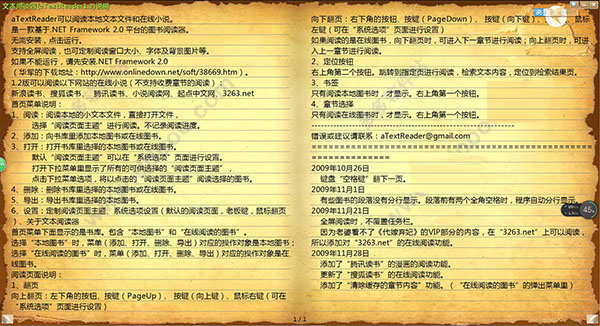 文本阅读器[aTextReader1.2]说明
aTextReader可以阅读本地文本文件和在线小说。
是一款基于.NET Framework 2.0 平台的图书阅读器。
无需安装，点击运行。
支持全屏阅读，也可定制阅读窗口大小、字体及背景图片等。
如果不能运行，请先安装.NET Framework 2.0
（华军的下载地址：http://www.onlinedown.net/soft/38669.htm ）。
1.2版可以阅读以下网站的在线小说（不支持收费章节的阅读）：
新浪读书、搜狐读书、腾讯读书、小说阅读网、起点中文网、3263.net
首页菜单说明：
1、阅读：阅读本地的小文本文件，直接打开文件，
选择“阅读页面主题”进行阅读。不记录阅读进度。
2、添加：向书库里添加本地图书或在线图书。
3、打开：打开书库里选择的本地图书或在线图书。
默认“阅读页面主题”可以在“系统选项”页面进行设置。
打开下拉菜单里显示了所有的可供选择的“阅读页面主题”，
点击下拉菜单选项，将以点击的“阅读页面主题”阅读选择的图书。
4、删除：删除书库里选择的本地图书或在线图书。
5、导出：导出书库里选择的本地图书。
6、设置：定制阅读页面主题、系统选项设置（默认的阅读页面，老板键，鼠标翻页
）、关于文本阅读器
首页菜单下面显示的是书库。包含“本地图书”和“在线阅读的图书”。
选择“本地图书”时，菜单（添加、打开、删除、导出）对应的操作对象是本地图书；
选择“在线阅读的图书”时，菜单（添加、打开、删除、导出）对应的操作对象是在
线图书。
阅读页面说明：
1、翻页
向上翻页：左下角的按钮、按键（PageUp）、 按键（向上键）、鼠标右键（可在
“系统选项”页面进行设置）
向下翻页：右下角的按钮、按键（PageDown）、 按键（向下键）、
鼠标
左键（可在“系统选项”页面进行设置）
如果阅读的是在线图书，向下翻页时，可进入下一章节进行阅读；向上翻页时，可进
入上一章节进行阅读。
2、定位按钮
右上角第二个按钮。跳转到指定页进行阅读，检索文本内容，定位到检索结果页。
3、书签
只有阅读本地图书时，才显示。右上角第一个按钮。
4、章节选择
只有阅读在线图书时，才显示。右上角第一个按钮。
错误或建议请联系：aTextReader@gmail.com
2009年10月26日
键盘“空格键”翻下一页。
2009年11月1日
有些图书的段落没有分行显示。段落前有两个全角空格时，程序自动分行显示。
2009年11月21日
全屏阅读时，不覆盖任务栏。
因为老婆看不了《代嫁弃妃》的VIP部分的内容，在“3263.net”上可以阅读，
所以添加对“3263.net”的在线阅读功能。
2009年11月28日
添加了“腾讯读书”的漫画的阅读功能。
更新了“搜狐读书”的在线阅读功能。
添加了“清除缓存的章节内容”功能。（“在线阅读的图书”的弹出菜单里）
1 / 1